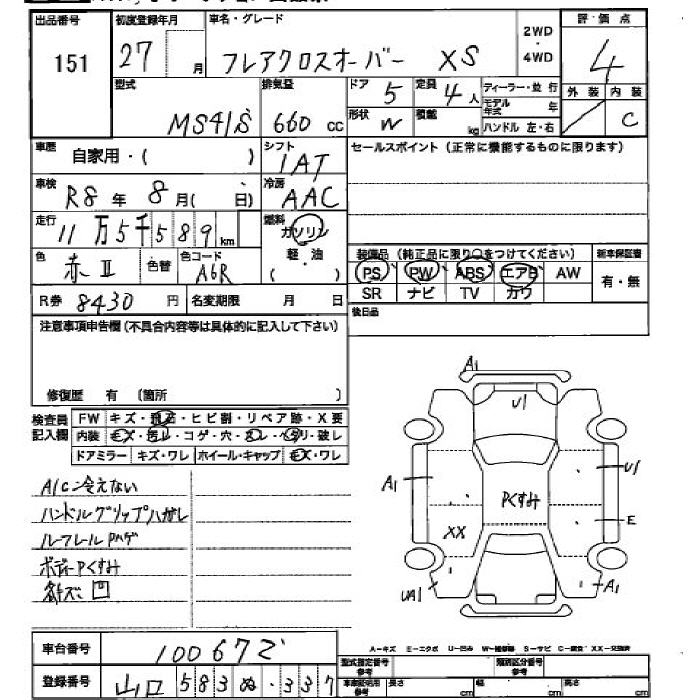 出品番号 初度登録年月 車名・グレード 2WD・4WD 評価点
151 27 月 フレアクロスオーバー XS 4
型式 排気量 ドア 定員 ディーラー・並行 外装 内装
MS41S 660 cc 5 4人 モデル年式 年 C
形状 W 積載 kg ハンドル 左・右
車歴 自家用・( ) シフト セールスポイント(正常に機能するものに限ります)
IAT
車検 R8年 8月( 日) 冷房 AAC
走行 11万5千589km 燃料 ガソリン
軽・油
( )
色 赤II 色替 色コード A6R
装備品(純正品に限り○をつけてください) 新車保証書
PS PW ABS エアB AW 有・無
SR ナビ TV カワ
R券 8430円 名変期限 月 日
後日品
注意事項申告欄(不具合内容等は具体的に記入して下さい)
修復歴 有 (箇所 )
検査員記入欄 FW キズ・飛石・ヒビ割・リペア跡・X要
内装 キズ・汚レ・コゲ・穴・スレ・ヘタリ・破レ
ドアミラー キズ・ワレ ホイール・キャップ キズ・ワレ
A/C冷えない
ハンドルグリップハガレ
ルーフレールPハゲ
ボディーPくすみ
各キズ凹
A1
U1
A1 U1
Pくすみ
E
XX
UA1 A1
A-キズ E-エクボ U-凹み W-補修跡 S-サビ C-腐食 XX-交換済
車台番号 100672
登録番号 山口 583 ぬ ・337
型式指定番号 参考 類別区分番号 参考
車庫証明用 参考 長さ cm 幅 cm 高さ cm